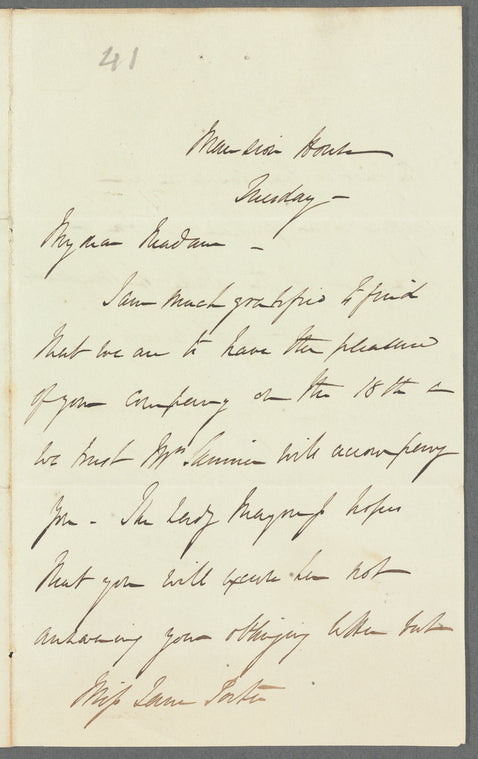 41
Mansion House
Tuesday -
My dear Madam -
I am much gratified to find
that we are to have the pleasure
of your company on the 18th &
we trust Mrs will accompany
you - The Lady Mayoress hopes
that you will excuse her not
answering your obliging letter but
Miss Jane Porter